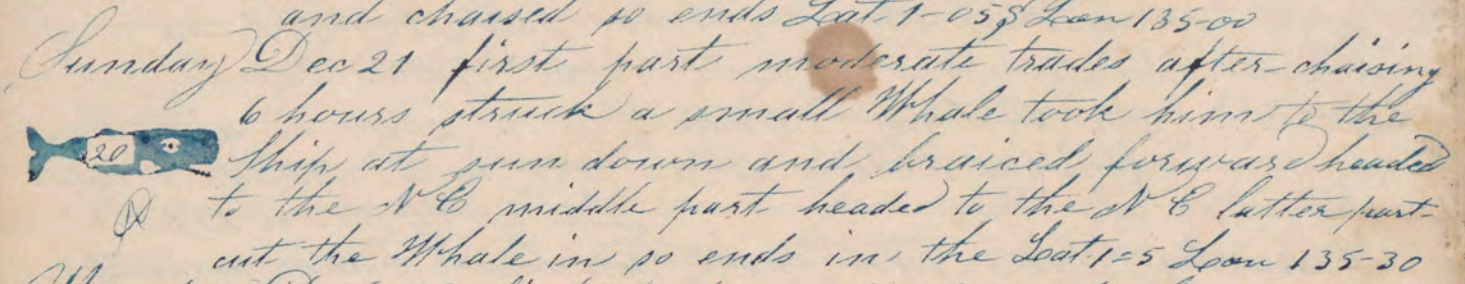 and chaised so ends Lat 1-05 S Lon 135-00
Sunday Dec 21 first part moderate trades after chaising
6 hours struck a small Whale took him to the
20 Ship at sun down and braiced forward headed
to the N E middle part headed to the N E latter part
cut the Whale in so ends in the Lat 1=5 Lon 135-30